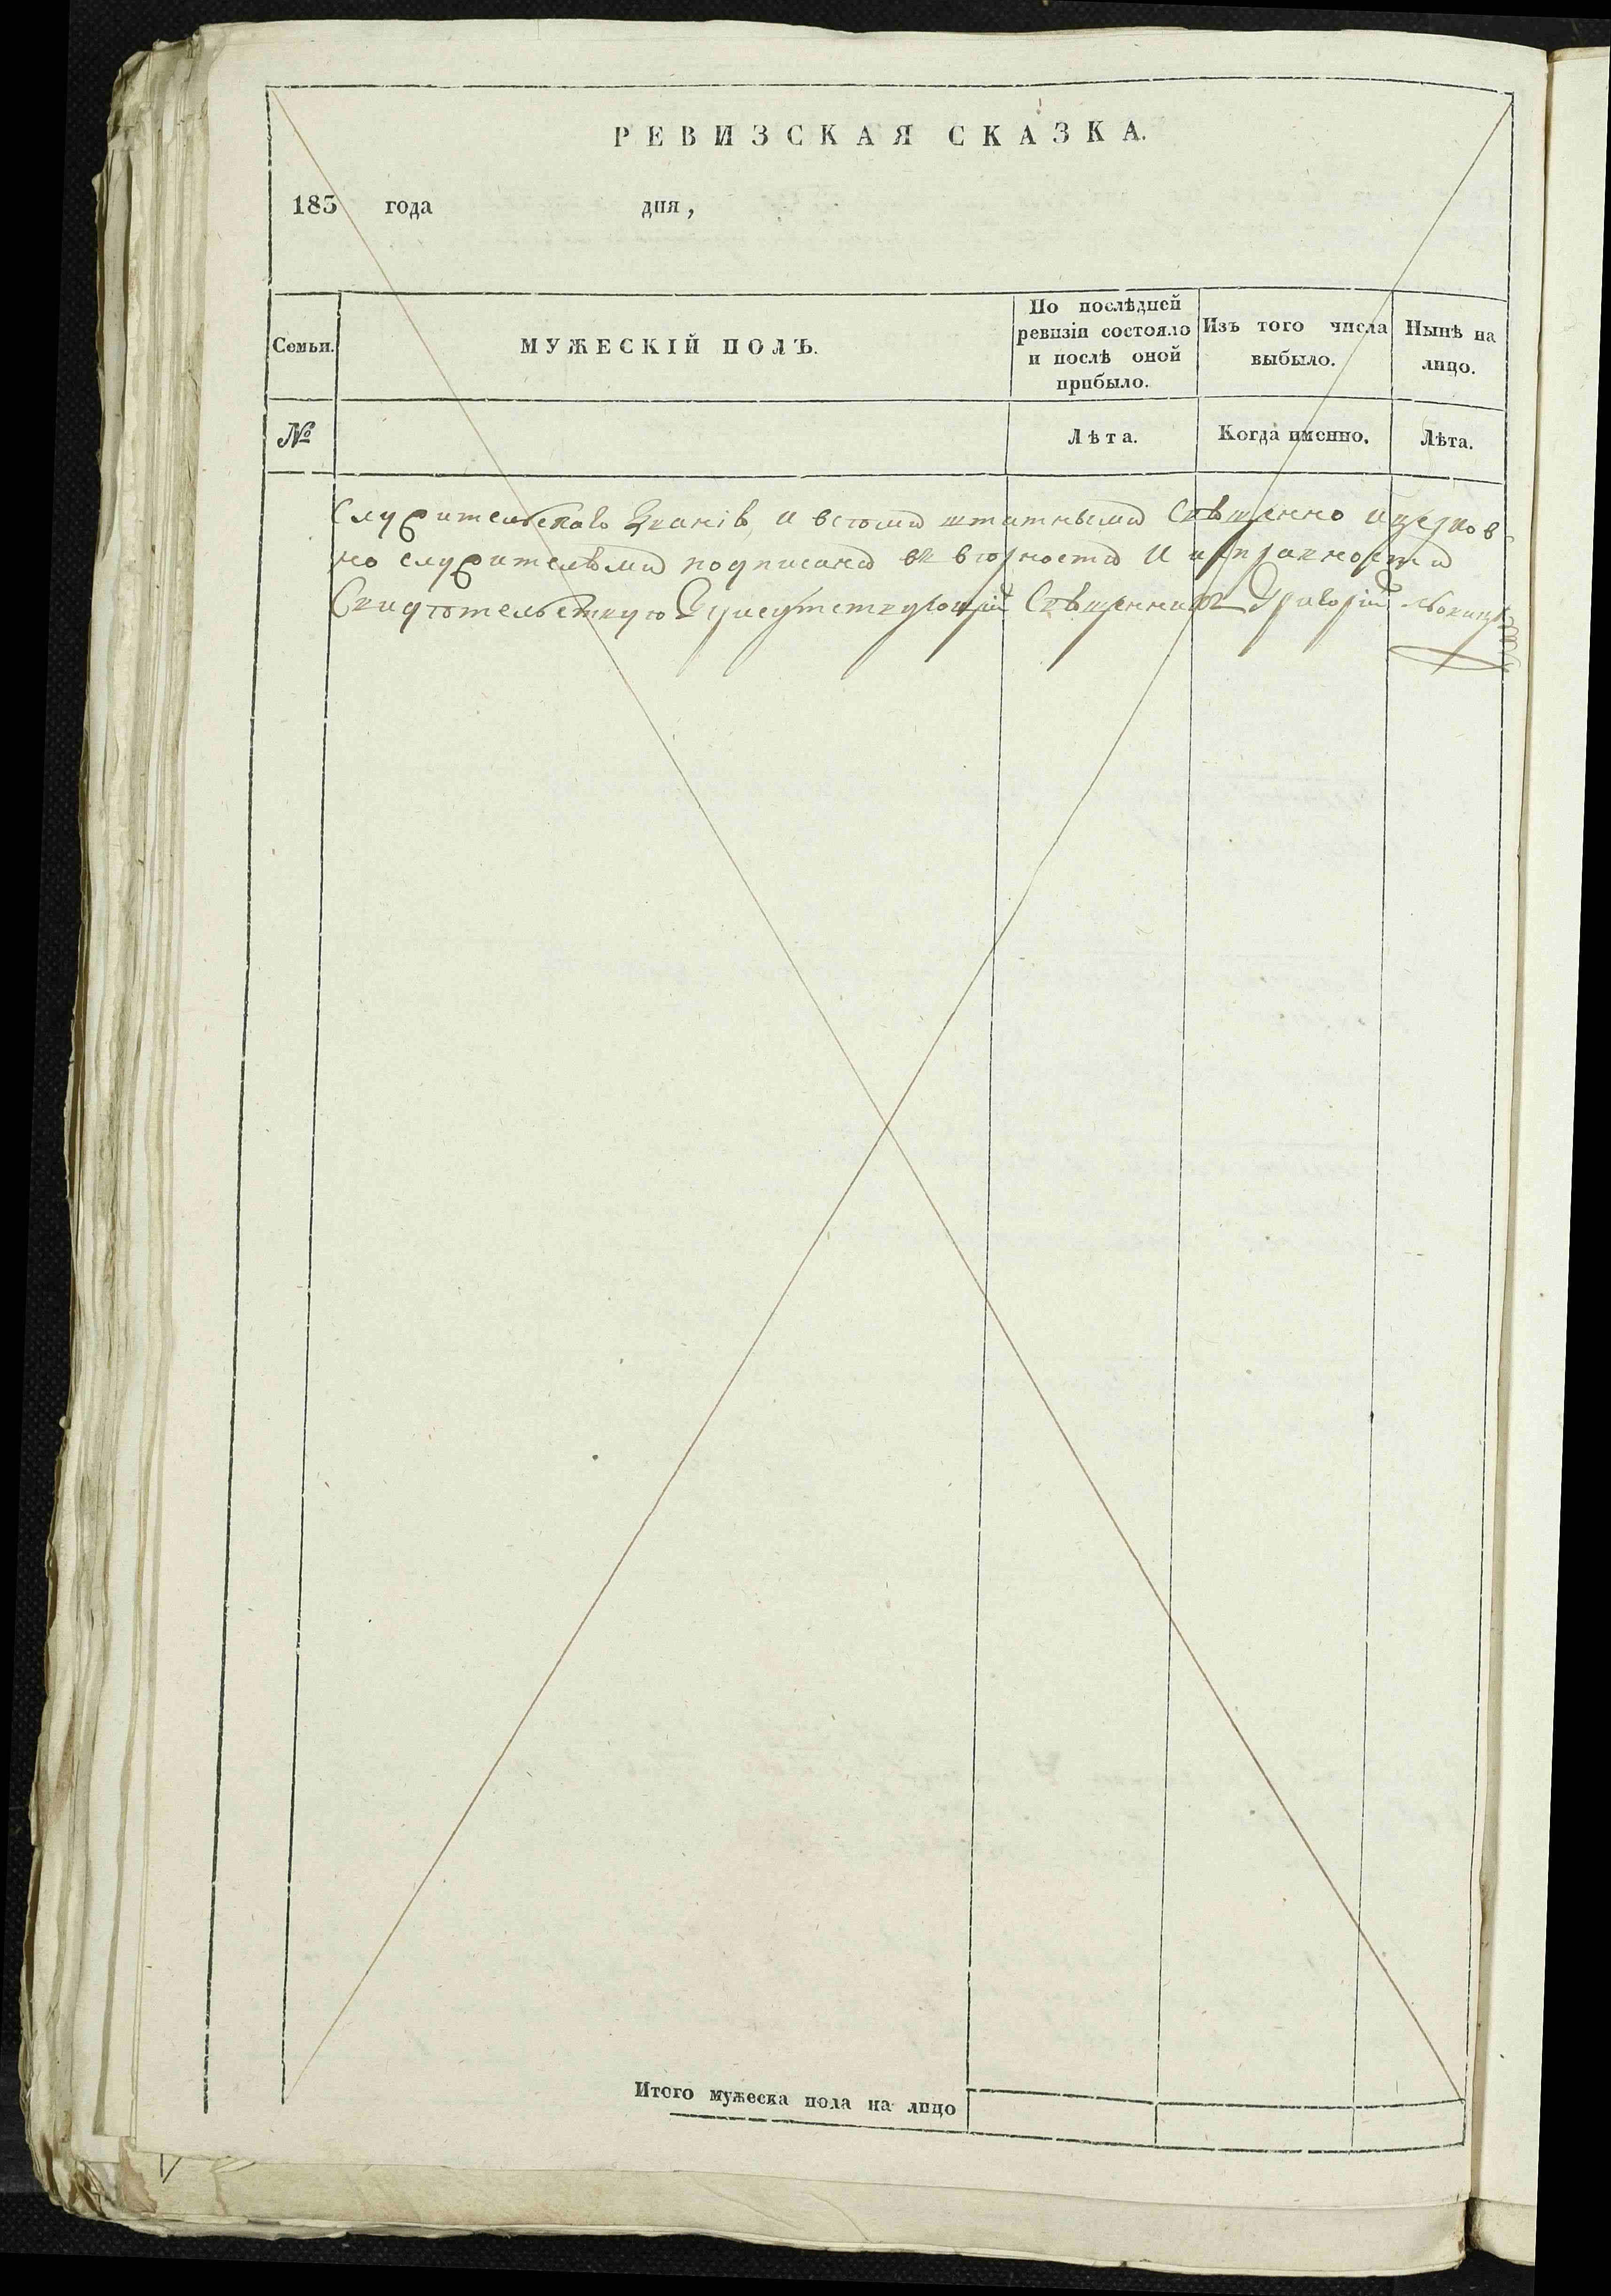 РЕВИЗСКАЯ СКАЗКА.
183 года дня,
Семьи.
МУЖЕСКІЙ ПОЛЪ.
По послѣдней
ревизіи состояло
и послѣ оной
прибыло.
Изъ того числа
выбыло.
Нынѣ на
лицо.
№
Лѣта.
Когда именно.
Лѣта.
Служительскаго Званія, и всѣми штатными Священно и церков
но служителями подписана въ вѣрности и исправности
Свидѣтельствую присутствующій Священникъ Григорій
Итого мужеска пола на лицо